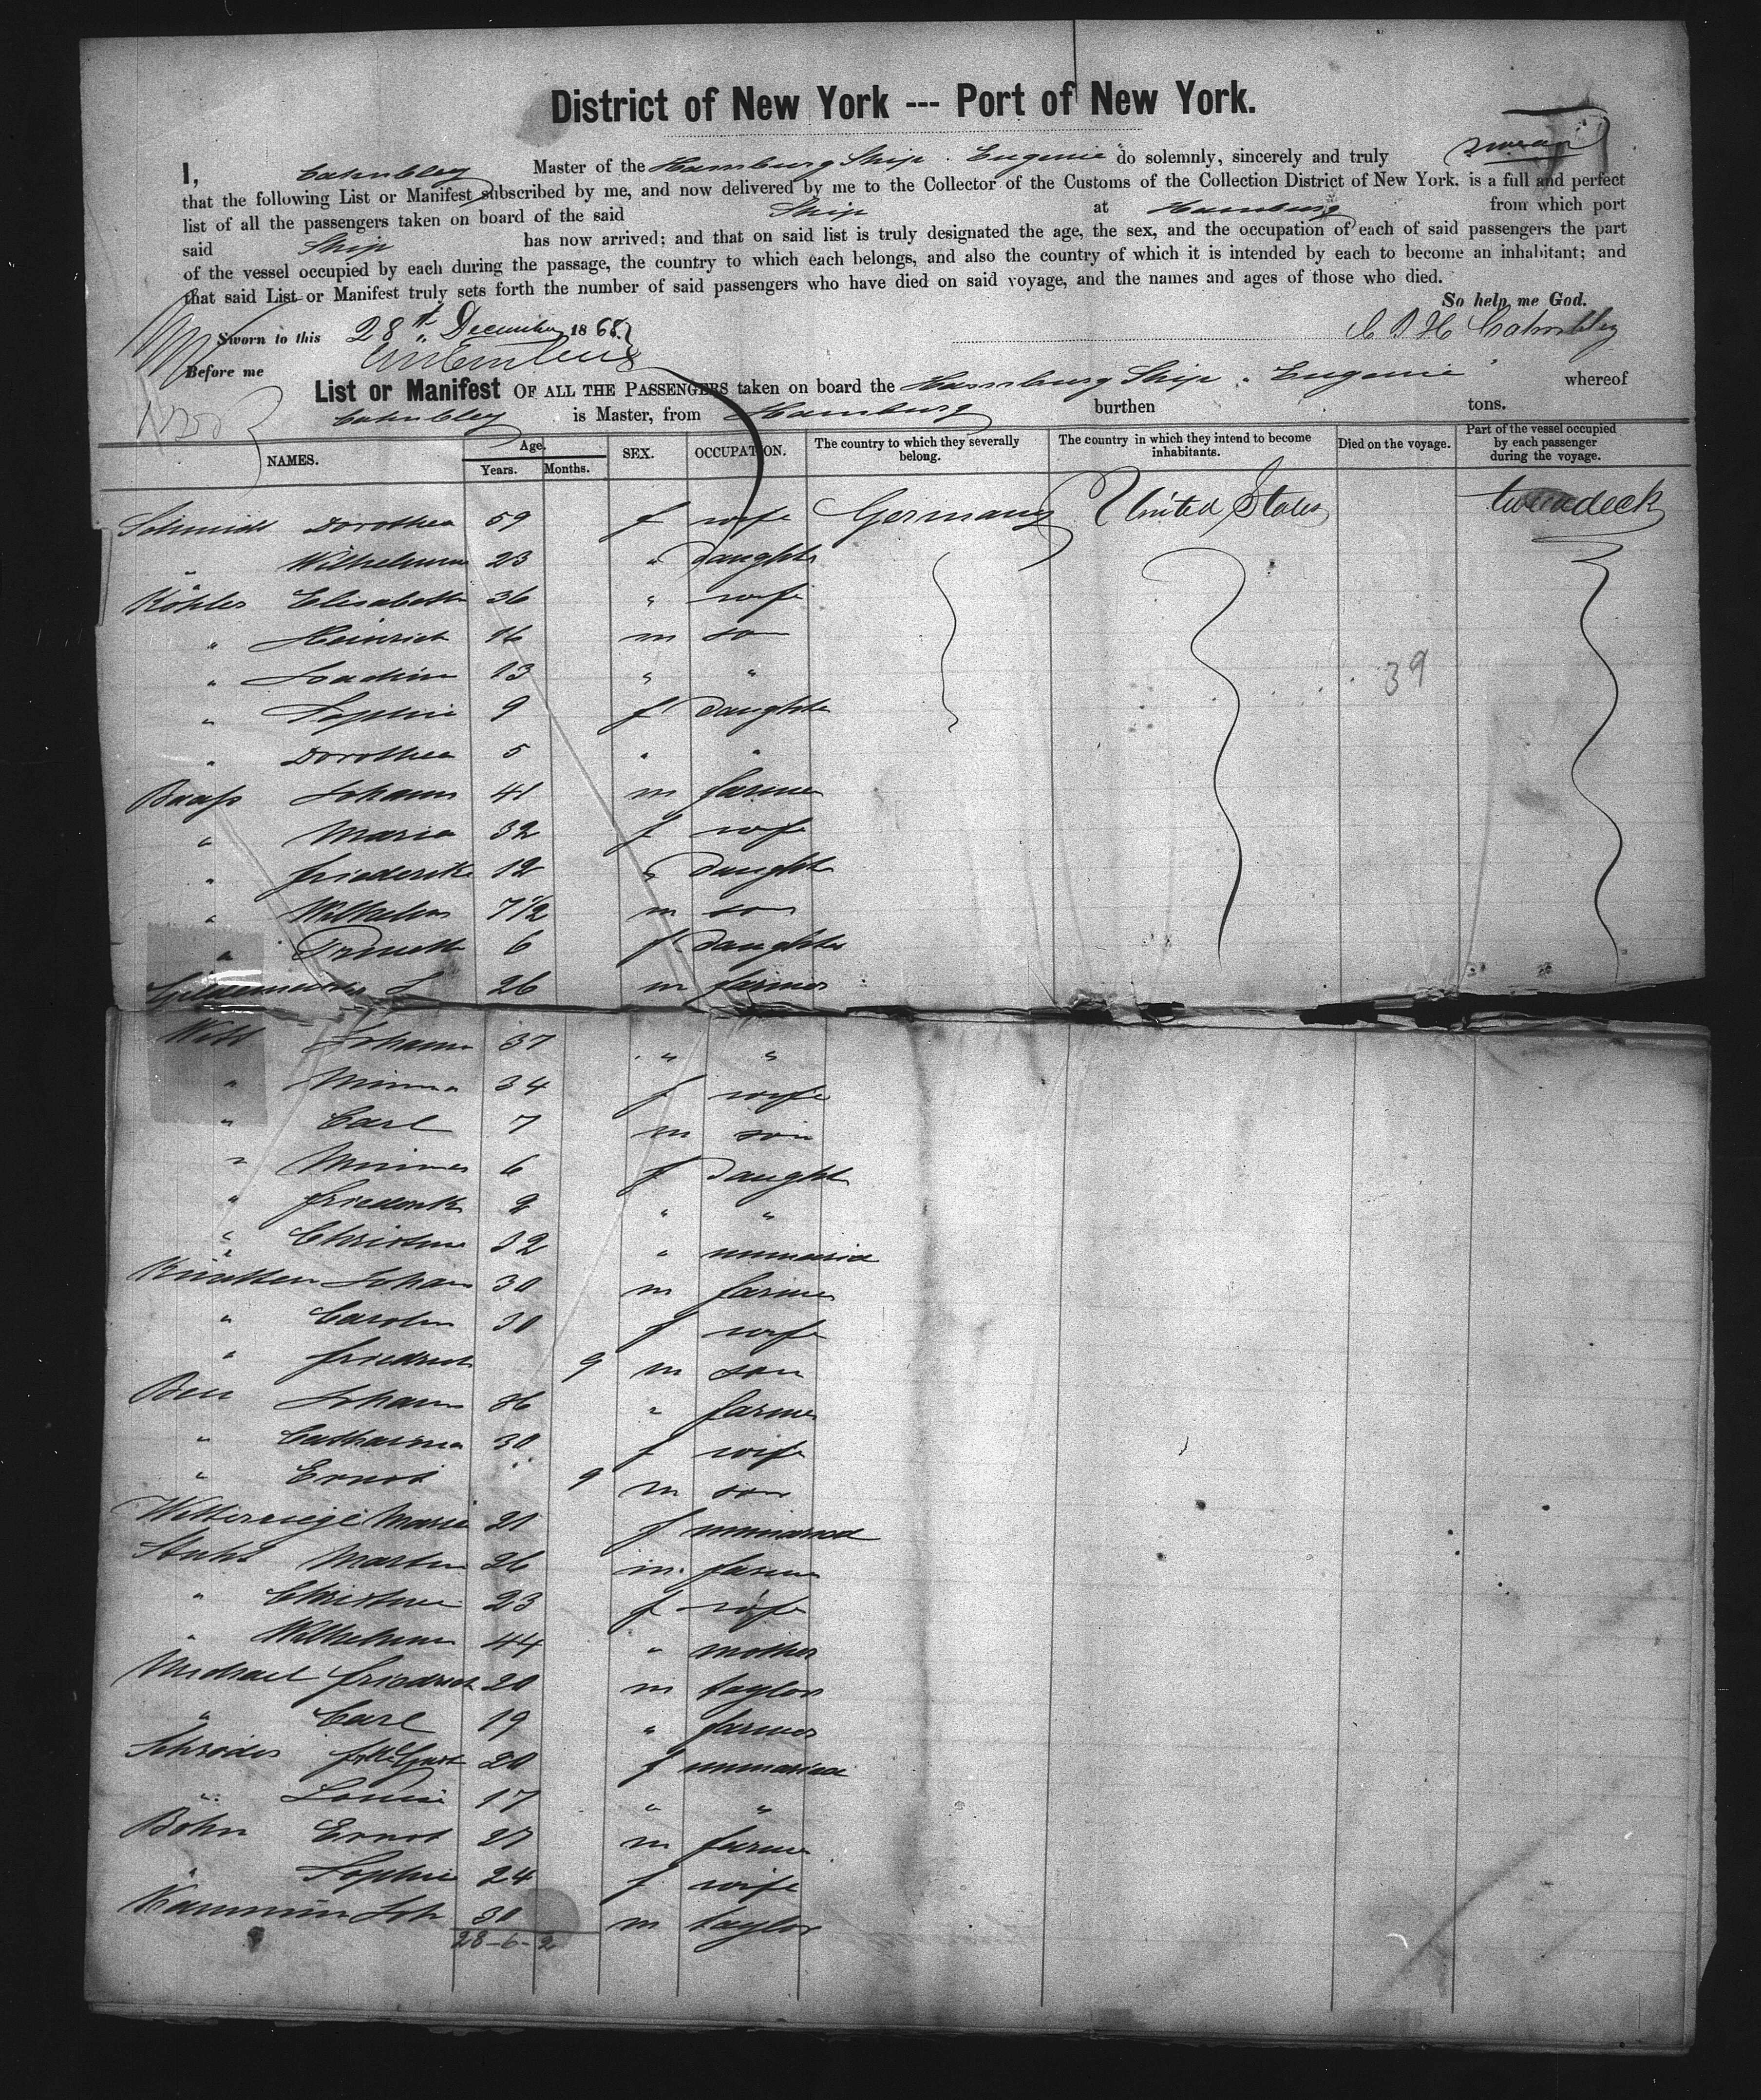 District of New York --- Port of New York.
I, Cahnbley Master of the Hamburg Ship "Eugenie" do solemnly, sincerely and truly swear
that the following List or Manifest subscribed by me, and now delivered by me to the Collector of the Customs of the Collection District of New York, is a full and perfect
list of all the passengers taken on board of the said Ship at Hamburg from which port
said Ship has now arrived; and that on said list is truly designated the age, the sex, and the occupation of each of said passengers the part
of the vessel occupied by each during the passage, the country to which each belongs, and also the country of which it is intended by each to become an inhabitant; and
that said List or Manifest truly sets forth the number of said passengers who have died on said voyage, and the names and ages of those who died.
So help me God.
Sworn to this 28th December 1868 Cahnbley
Before me
List or Manifest OF ALL THE PASSENGERS taken on board the Hamburg Ship "Eugenie" whereof
Cahnbley is Master, from Hamburg burthen tons.
NAMES. Age. Years. Months. SEX. OCCUPATION. The country to which they severally belong. The country in which they intend to become inhabitants. Died on the voyage. Part of the vessel occupied by each passenger during the voyage.
Schmidt Dorothea 59 f wife Germany United States tweendeck
" 23 " daughter
Köhler Elisabeth 36 " wife
" Heinrich 16 m son
" 13 " "
39
" Sophie 9 f daughter
" Dorothea 5 " "
Baass Johann 41 m farmer
" Maria 32 f wife
" Friederike 12 " daught
" Wilhelm 7 1/2 m son
" 6 f daughter
26 m farmer
Witt Johann 37 " "
" Minna 34 f wife
" Carl 7 m son
" Minna 6 f daught
" Friederike 2 " "
" Christine 32 "
Johann 30 m farmer
" Carolin 30 f wife
" Friedrich 9 m son
Johann 36 " farmer
" Catharina 30 f wife
" Ernst 9 m son
Maria 21 f
Martin 26 m farmer
" Christine 23 f wife
" 44 " mother
Michael Friedrich 20 m taylor
" Carl 19 " farmer
Schröder 20 f
" Louise 17 " "
Böhn Ernst 27 m farmer
" Sophie 24 f wife
Joh 30 m taylor
28-6-2